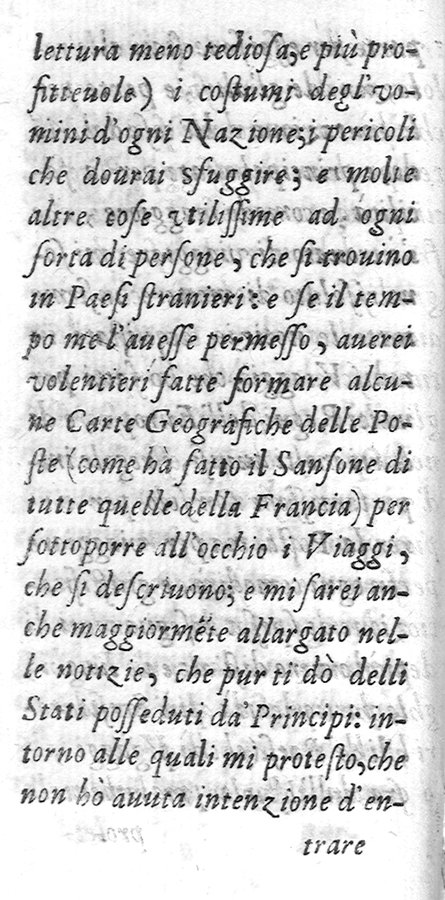 lettura meno tedioſa, e più pro-
fitteuole) i coſtumi degl'vo-
mini d'ogni Nazione; i pericoli
che dourai sfuggire; e molte
altre coſe vtiliſſime ad ogni
ſorta di perſone, che ſi trouino
in Paeſi ſtranieri: e ſe il tem-
po me l'aueſſe permeſſo, auerei
volentieri fatte formare alcu-
ne Carte Geografiche delle Po-
ſte (come hà fatto il Sanſone di
tutte quelle della Francia) per
ſottoporre all'occhio i Viaggi,
che ſi deſcriuono; e mi ſarei an-
che maggiormẽte allargato nel-
le notizie, che pur ti dò delli
Stati poſſeduti da' Principi: in-
torno alle quali mi proteſto, che
non hò auuta intenzione d'en-
trare